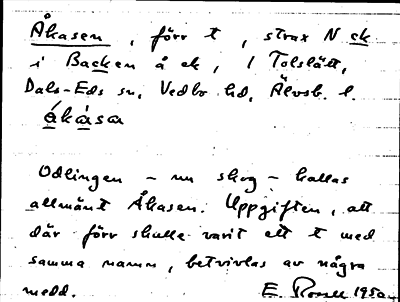 Åkasen, förr t, strax N ck
i Backen å ek, 1 Tolslätt,
Dals-Eds sn, Vedbo hd, Älvsb. l.
ákàsa
Odlingen - nu skog - kallas
allmänt Åkasen. Uppgiften, att
där förr skulle varit ett t med
samma namn, betvivlas av några
medd. E. 1950